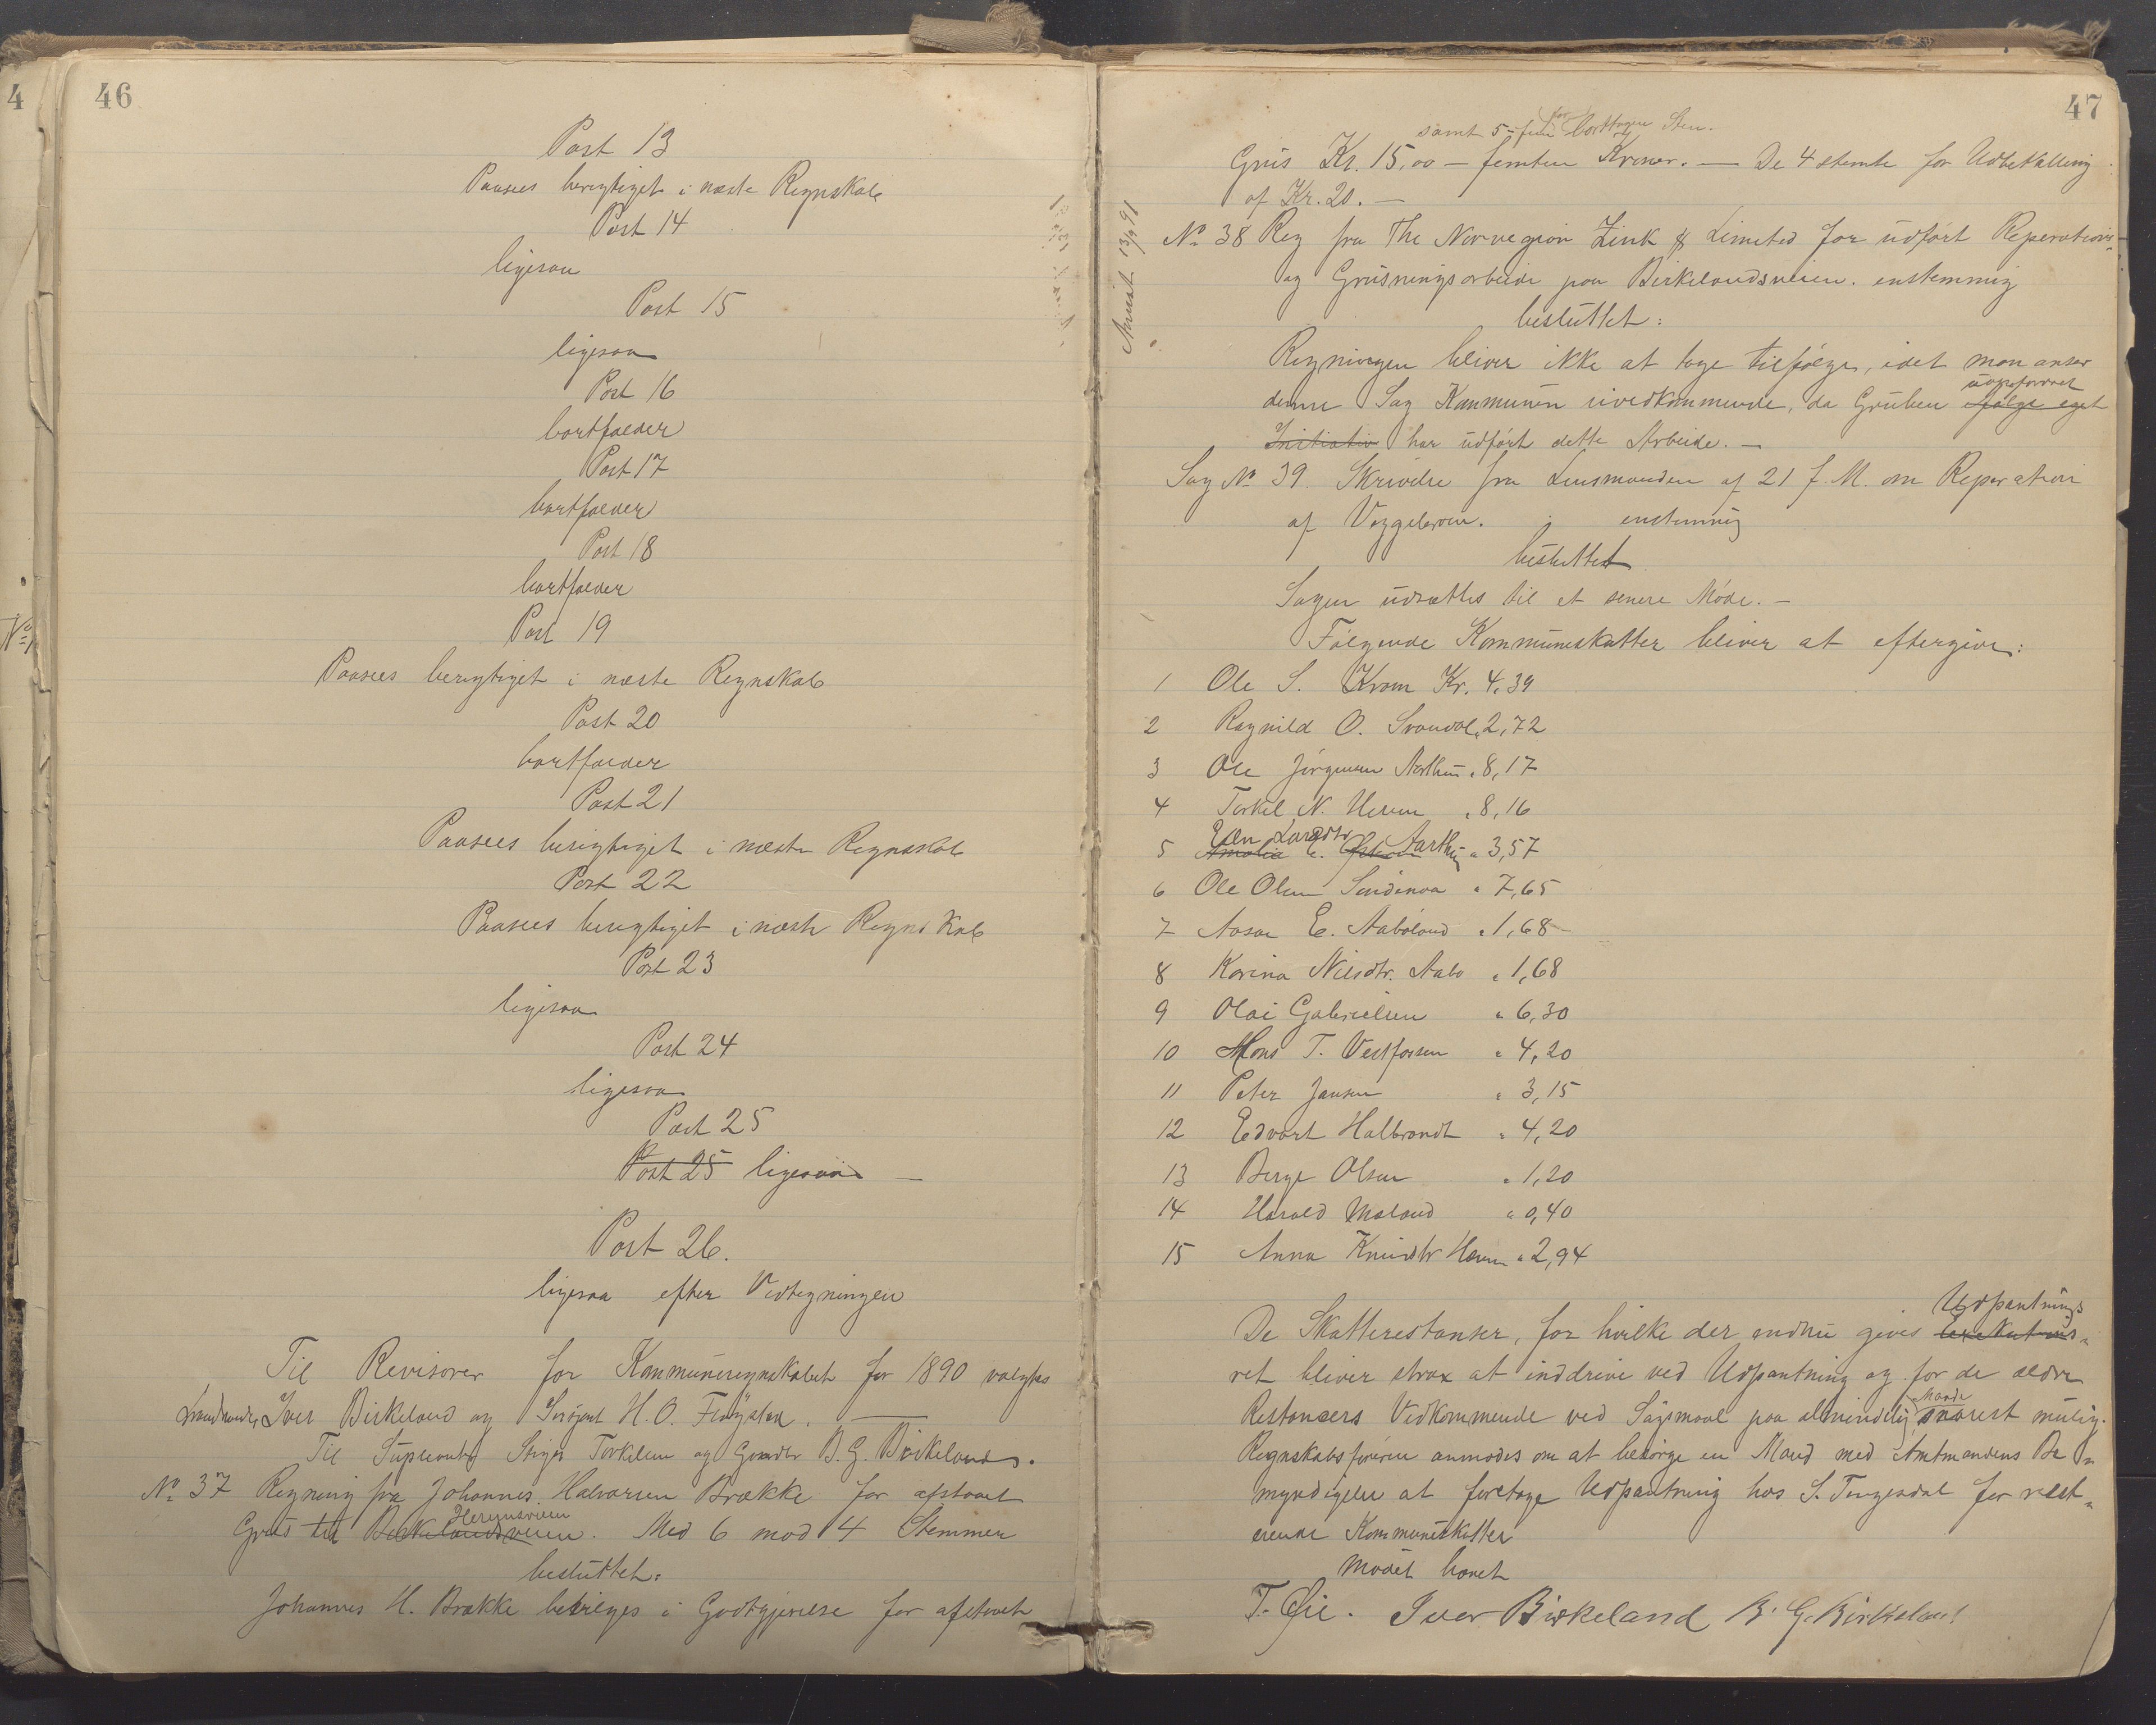 46
Post 13
Paasees berigtiget i næste Regnskab
Post 14
ligesaa
Post 15
ligesaa
Post 16
bortfalder
Post 17
bortfalder
Post 18
bortfalder
Post 19
Paasees berigtiget i næste Regnskab
Post 20
bortfalder
Post 21
Paasees berigtiget i næste Regnskab
Post 22
Paasees berigtiget i næste Regnskab
Post 23
ligesaa
Post 24
ligesaa
Post 25
Post 25 ligesaa —
Post 26.
ligesaa efter Vedtegningen
Til Revisorer for Kommuneregnskabet for 1890 valgtes
Iver Birkeland og H. O. Fløysta. —
Til Torkelsen og B. G. Birkeland.
No 37 Regning fra Johannes Halvorsen Brække for afstaaet
Herignsveien
Grus til Birkelandsveien. Med 6 mod 4 Stemmer
besluttet:
Johannes H. Brække betales i Godtgjørelse for afstaaet
47
samt 5 - fem for borttagen Sten.
Grus Kr. 15,00 — femten Kroner. — De 4 stemte for Udbetalling
af Kr. 20. —
Anvist 13/9 91
No 38 Reg fra The Norvegion Zink & Limited for udført Reperations-
og Grusningsarbeide paa Birkelandsveien. enstemmig
besluttet:
Regningen bliver ikke at tage tilfølge, idet man anser
uopfordret
denne Sag Kommunen uvedkommende, da Gruben ifølge eget
Initiativ har udført dette Arbeide. —
Sag No 39. Skrivelse fra Lensmanden af 21 f. M. om Reparation
af enstemmig
besluttet
Sagen udsættes til et senere Møde. —
Følgende Kommuneskatter bliver at eftergive:
1 Ole S. Kvam Kr. 4,39
2 Ragnild O. Svandal " 2,72
3 Ole Jørgensen " 8,17
4 Torkel N. " 8,16
Elen Larsdtr
5 Amalia E. Aarthu " 3,57
6 Ole Olsen " 7,65
7 Aasa E. Aaboland " 1,68
8 Karina Nilsdtr. Aabo " 1,68
9 Olai Gabrielsen " 6,30
10 Mons T. Vestfossen " 4,20
11 Peter Jansen " 3,15
12 Edvart Halbrandt " 4,20
13 Berge Olsen " 1,20
14 Harald Maland " 0,40
15 Anna Knudsdtr " 2,94
Udpantnings
De Skatterestanser, for hvilke der endnu gives Exekutions-
ret bliver strax at inddrive ved Udpantning og for de ældre
Maade
Restansers Vedkommende ved Søgsmaal paa almindelig snarest mulig.
Regnskabsføreren anmodes om at besørge en Mand med Amtmandens Be-
myndigelse at foretage Udpantning hos S. Tengesdal for rest-
erende Kommuneskatter
Mødet hævet
T. Øie. Iver Birkeland B. G. Birkeland